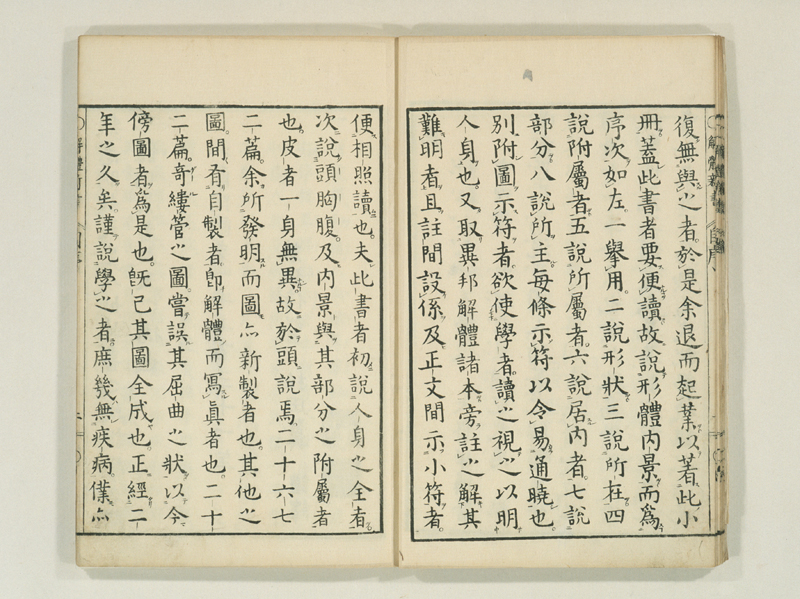 復無與之者於是余退而起業以著此小
冊蓋此書者要便讀故說形體內景而爲
序次如左一舉用二說形狀三說所在四
說附屬者五說所屬者六說居內者七說
部分八說所主每條示符以令易通曉也
別附圖示符者欲使學者讀之視之以明
人身也又取異邦解體諸本旁註之解其
難明者且註間設係及正文間示小符者
便相照讀也夫此書者初說人身之全者
次說頭胸腹及內景與其部分之附屬者
也皮者一身無異故於頭說焉二十六七
二篇余所發明而圖亦新製者也其他之
圖間有自製者卽解體而寫眞者也二十
二篇奇縷管之圖嘗誤其屈曲之狀以今
傍圖者爲是也旣已其圖全成也正經二
年之久矣謹說學之者庶幾無疾病僕亦